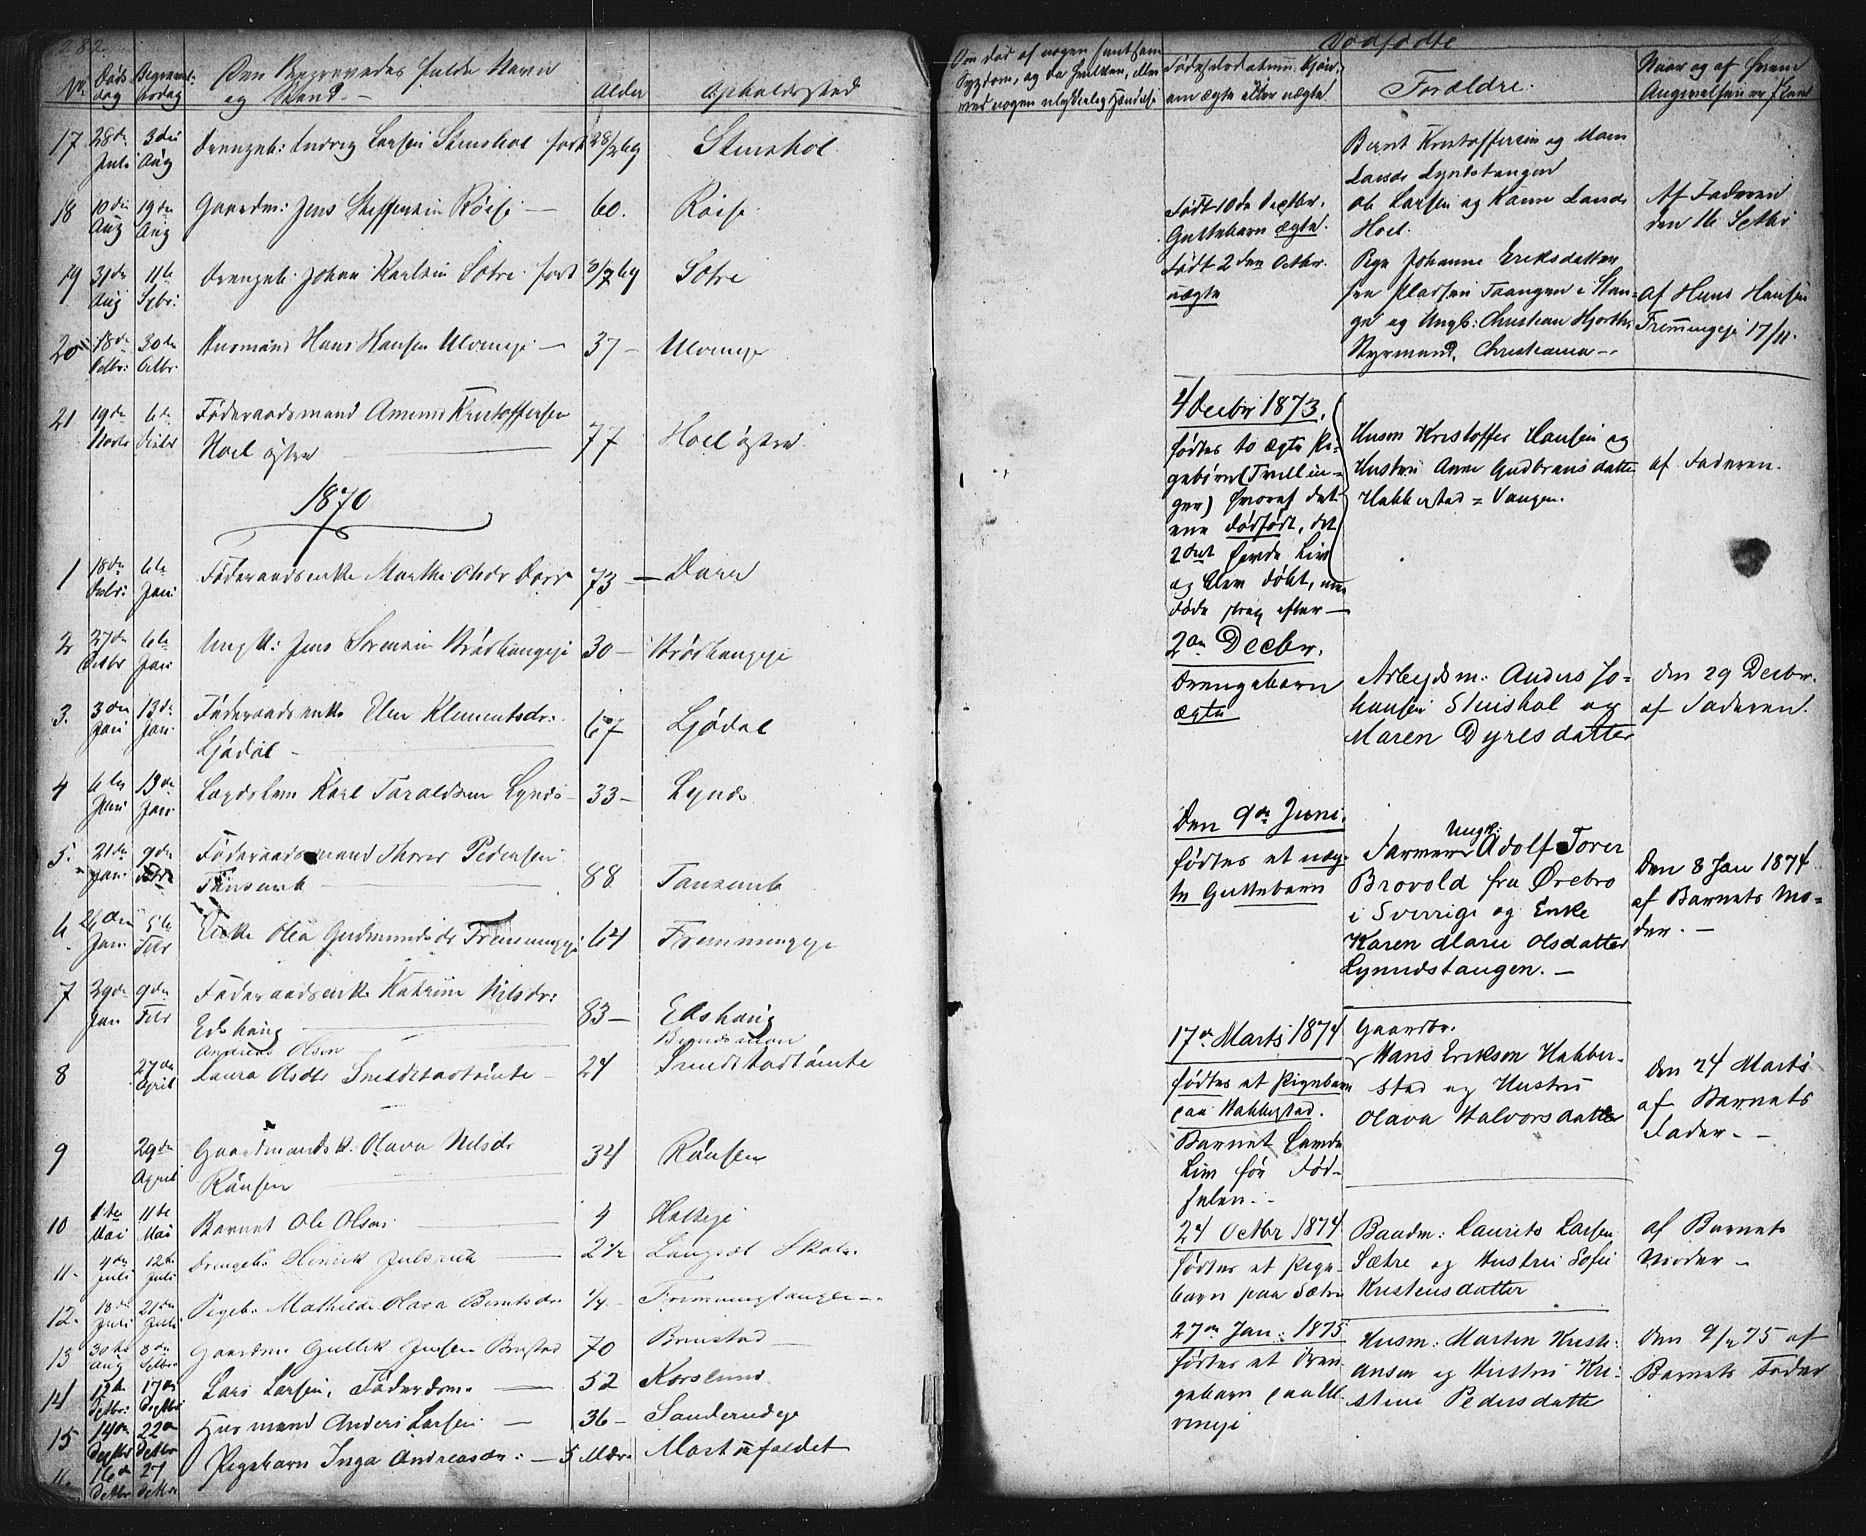 282
No Døds dag Begravel. sesdag Den Begravedes fulde Navn og Stand.- Alder Opholdssted
17 28de Juli 3die Aug Drengeb: Ludvig Larsen Stenshol født 28/2 69 Stenshol
18 10de Aug 19de Aug Gaardm: Jens Steffensen Røise — 60. Røise
19 31de Aug 11te Sept: Drengeb: Johan Karlsen Sætre født 69 Sætre
20 18de Octbr: 30de Octbr Husmand Hans Hansen Ulvineje — 37 — Ulvineje
21 19de Novbr 6te Decbr Føderaadsmand Amund Kristoffersen
Hoel østre — 77 Hoel østre
1870
1 18de Decbr: 6te Jan: Føderaadsenke Marthe Olsdr Dorr 73 — Dorr
2 27de Decbr 6te Jan Ungk: Jens Sørensen Brødhaugeje 30 — Brødhaugeje
3. 3die Jan 13de Jan: Føderaadsenke Elen Klementsdr:
Ljødal — 67 Ljødal
4 6te Jan: 13de Jan: Lægdslem Karl Taraldsen Lynds 33 — Lynds
5. 21de Jan: 9de Febr Føderaadsmand Thorer Pedersen
Tansemb — 88 Tansemb
6 26de Jan: 5te Febr Enke Olea Gudmundsdr Fremmingeje 64 Fremmingeje
7 29de Jan 9de Febr Føderaadsenke Katrine Nilsdr:
Edshaug — 83 — Edshaug
Andreas Olsen
8 27de April Laura Olsdtr Smedstadtomte — 24 Smedstadtomte
9 29de April Gaardmandsk. Olava Nilsdr
Raasen — 34 Raasen
10 1ste Mai 11te Mai Barnet Ole Olsen — 4
11. 4de Juli 12te Juli Drengeb: Hinrik — 2 1/2
12. 18de Juli 21de Juli Pigeb: Mathilde Olava Berntsdr 1/4 — Fremmingtangen —
13 30te Aug 8de Septbr Gaardm: Gullik Jensen Brustad 70 Brustad —
14 12te Septbr: 17de Septbr Lars Larsen, Føderdsm. — 52 Korslund.
15 14de Septbr 22de Septbr Husmand Anders Larsen. — 36 — Sanderudeje
16de Octbr 27 Octbr Pigebarn Inga Andreasdr: — 5 Mdr Martinfaldet
Om død af nogen smitsom Sygdom, og da hvilken, eller ved nogen ulykkelig Hændelse
Dødfødte
Fødselsdatum, Kjøn, om ægte eller uægte
Forældre.
Naar og af hvem Angivelsen er skeet
Bernt Kristoffersen og Maren
Larsdr Lyndstangen
Født 10de Decbr.
Guttebarn ægte.
Ole Larsen og Karen Larsdr
Hoel.
Af Faderen
den 16 Septbr
Født 2den Octbr.
uægte
Pige Johanne Eriksdatter
fra Pladsen Taangen i Stan-
ge og Ungk: Christian Hjorth,
Styrmand, Christiania —.
af Hans Hansen
Fremmingeje 17/11.
4 Decbr 1873.
fødtes to ægte Pi-
gebørn (Tvillin-
ger) hvoraf det
ene dødfødt, det
2det havde Liv
og blev døbt, men
døde strax efter —
Husm Kristoffer Hansen og
Hustru Anne Gudbransdatter
Habberstad = Vangen.
af Faderen.
2den Decbr.
Drengebarn
ægte
Arbejdsm: Anders Jo-
hansen Stenshol og
Maren Dyresdatter
den 29 Decbr.
af Faderen.
Den 9de Juni
fødtes et uæg-
te Guttebarn
Ungk:
Farmer Adolf Torer
Brovold fra Ørebro
i Sverrige og Enke
Karen Marie Olsdatter
Lynndstangen. —
Den 8 Jan 1874
af Barnets Mo-
der. —
17de Marts 1874
fødtes et Pigebarn
paa Habberstad.
Barnet havde
Liv før Fød-
selen. -
Gaardbr.
Hans Erikson Habber-
stad og Hustru
Olava Halvorsdatter
den 24 Marts
af Barnets
Fader. —
24 Octbr 1874
fødtes et Pige-
barn paa Sætre
Baadm: Laurits Larsen
Sætre og Hustru Sofie
Kristensdatter
af Barnets
Moder —
27de Jan: 1875
fødtes et Dren-
gebarn paa Ul-
vineje
Husm: Marten Kristi-
ansen og Hustru Kri-
stine Pedersdatter
den 9/2 75 af
Barnets Fader